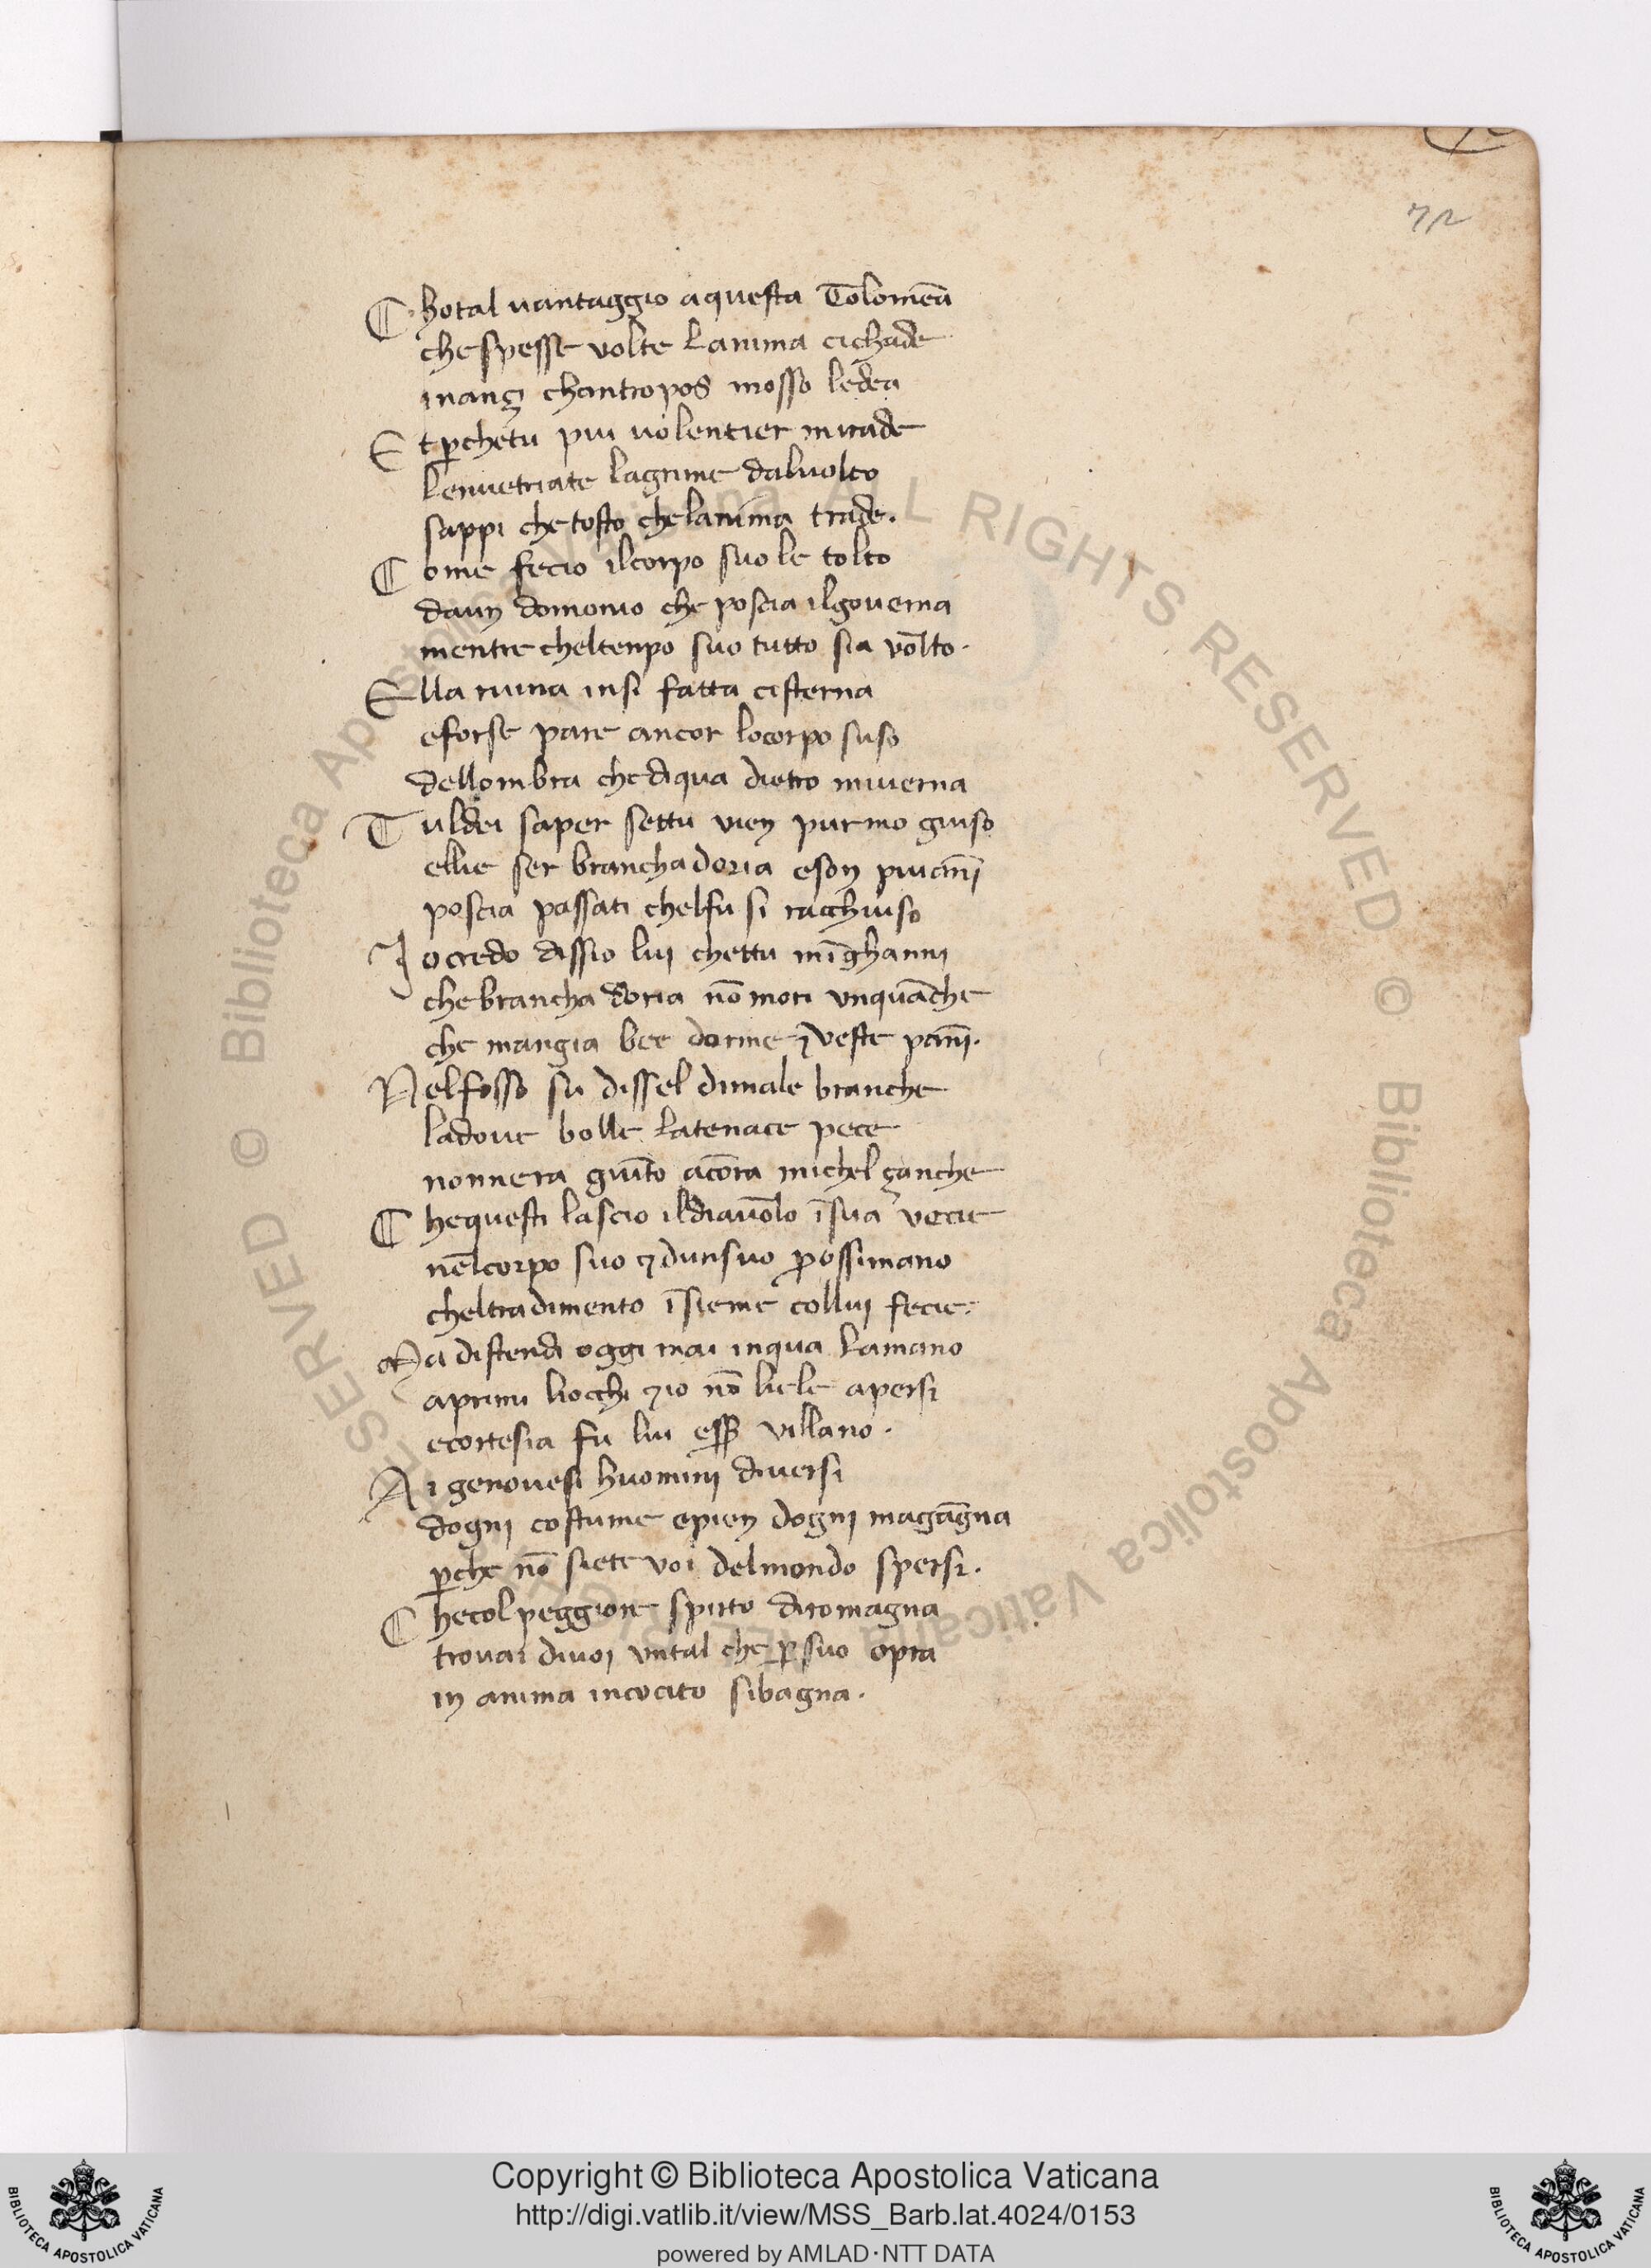 72
Chotal uantaggio aquesta Tolomea
che spesse volte lanima cichade
inançi chantropos mosso ledea
Et ꝑchetu piu uolentier mirade
lenuetriate lagrime daluolto
sappi chetosto chelanima trade.
Come fecio ilcorpo suo le tolto
daun domonio che poscia ilgouerna
mentre cheltenpo suo tutto sia volto.
Ella ruina insi fatta cisterna
eforse pare ancor locorpo suso
dellombra che diqua dietro miuerna
Tuldei saper settu vien pur mo giuso
ellie ser branchadoria eson piuāni
poscia passati chelfu si racchiuso
Io credo dissio lui chettu mīghanni
chebrancha doria nō mori vnquāche
che mangia bee dorme ⁊ veste pāni.
Nelfosso su dissel dimale branche
ladoue bolle latenace pece
nonnera giūto acōra michel çanche
Chequesti lascio ildiauolo ī sua vecie
nelcorpo suo ⁊ dunsuo ꝓossimano
cheltradimento īsieme collui fecie.
Ma distendi oggi mai inqua lamano
aprimi liocchi ⁊ io nō liele apersi
ecortesia fu lui esse͛ villano.
Ai genouesi huomini diuersi
dogni costume epien dogni magāgna
ꝑche nō siete voi delmondo spersi.
Checol peggiore spirto diromagna
trouai diuoi vntal che ꝑ suo opra
in anima incocito sibagna.
Biblioteca Apostolica Vaticana ALL RIGHTS RESERVED © Biblioteca Apostolica Vaticana ALL RIGHTS RESERVED ©
Copyright © Biblioteca Apostolica Vaticana
http://digi.vatlib.it/view/MSS_Barb.lat.4024/0153
powered by AMLAD·NTT DATA
BIBLIOTECA APOSTOLICA VATICANA
BIBLIOTECA APOSTOLICA VATICANA